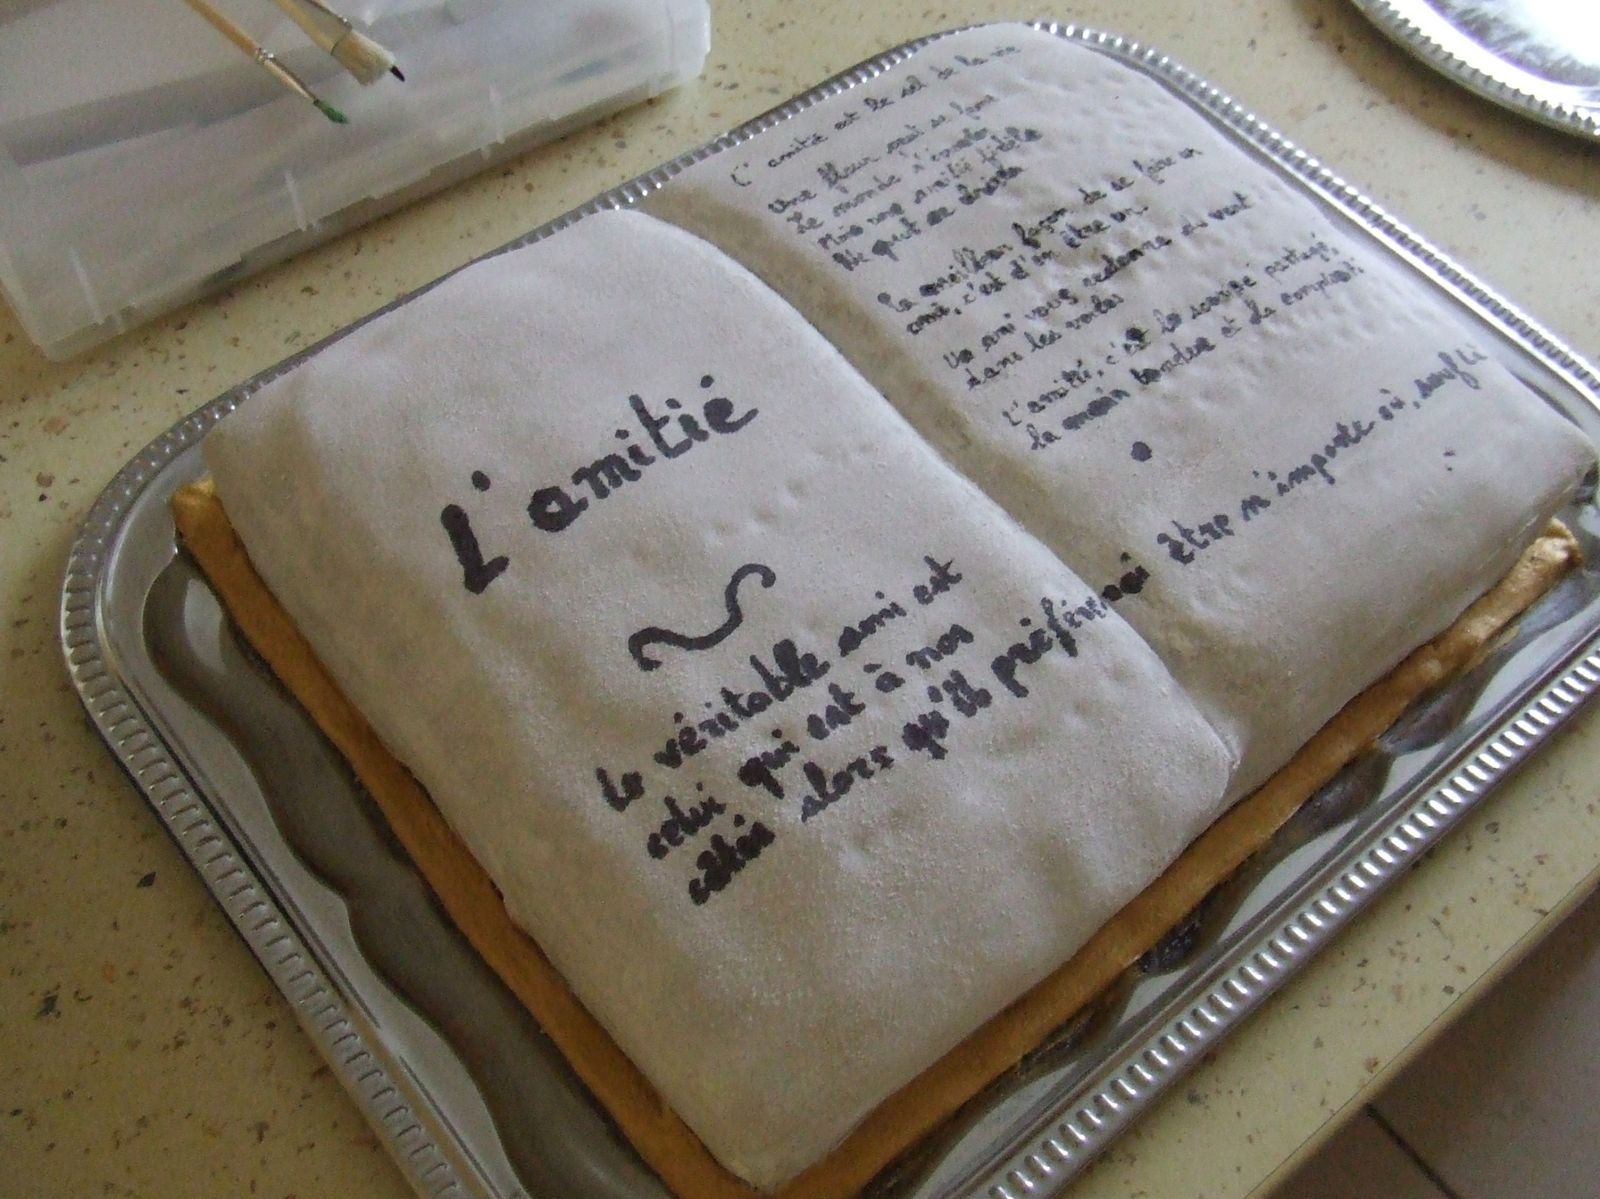 L'amitié
Le véritable ami est
celui qui est à nos
côtés alors qu'il préférerai être n'importe où, soufflé
L'amitié est le sel de la vie
Une fleur sait se faner
Le monde s'envoler
Mais une amitié fidèle
Ne peut se
La meilleur façon de se faire un
ami, c'est d'en être un.
Un ami vous redonne du vent
dans les voiles
L'amitié, c'est le songe partagé
la main tendue et la complicité